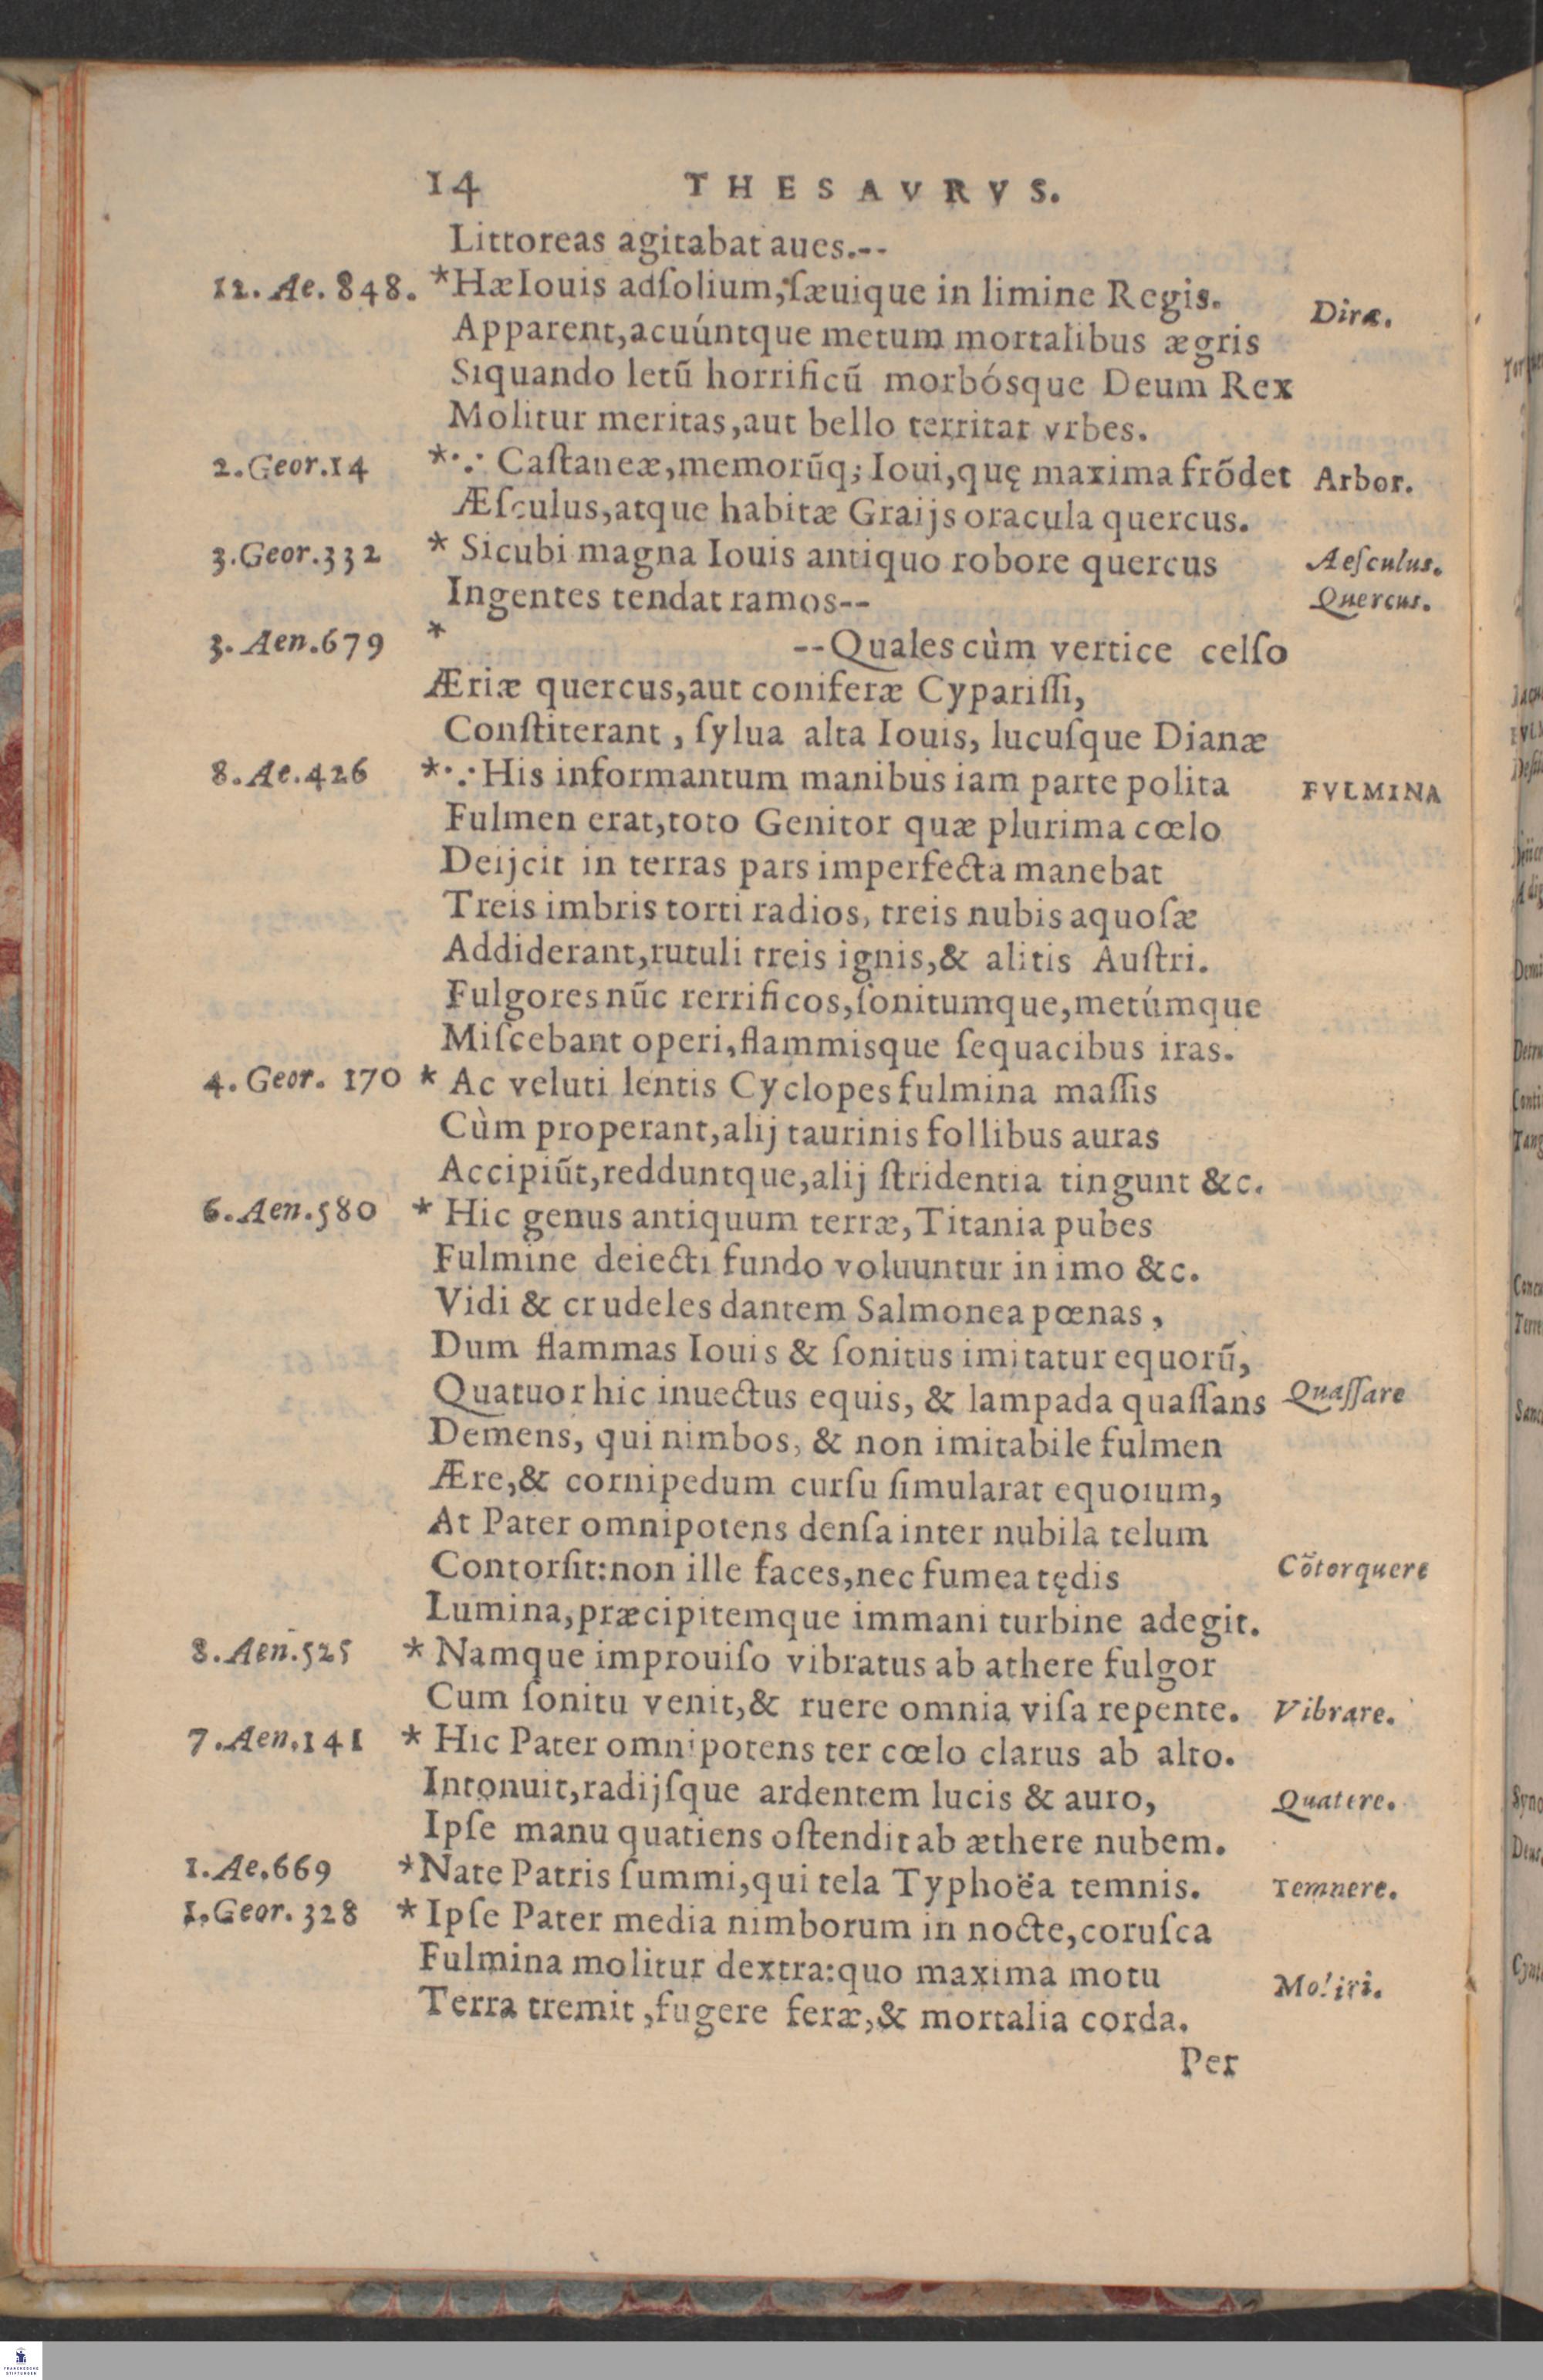 14 THESAVRVS.
Littoreas agitabat aues.--
12. Ae. 848. *Hæ Iouis ad ſolium, ſæuique in limine Regis. Diræ.
Apparent, acuúntque metum mortalibus ægris
Siquando letũ horrificũ morbósque Deum Rex
Molitur meritas, aut bello territat vrbes.
2. Geor. 14 *∵ Caſtaneæ, memorũq; Ioui, quę maxima frõdet Arbor.
Æſculus, atque habitæ Graijs oracula quercus.
3. Geor. 332 * Sicubi magna Iouis antiquo robore quercus Aeſculus.
Ingentes tendat ramos-- Quercus.
3. Aen. 679 * --Quales cùm vertice celſo
Æriæ quercus, aut coniferæ Cypariſſi,
Conſtiterant, ſylua alta Iouis, lucuſque Dianæ
8. Ae. 426 *∵ His informantum manibus iam parte polita FVLMINA
Fulmen erat, toto Genitor quæ plurima cœlo
Deijcit in terras pars imperfecta manebat
Treis imbris torti radios, treis nubis aquoſæ
Addiderant, rutuli treis ignis, & alitis Auſtri.
Fulgores nũc rerrificos, ſonitumque, metúmque
Miſcebant operi, flammisque ſequacibus iras.
4. Geor. 170 * Ac veluti lentis Cyclopes fulmina maſſis
Cùm properant, alij taurinis follibus auras
Accipiũt, redduntque, alij ſtridentia tingunt &c.
6. Aen. 580 * Hic genus antiquum terræ, Titania pubes
Fulmine deiecti fundo voluuntur in imo &c.
Vidi & crudeles dantem Salmonea pœnas,
Dum flammas Iouis & ſonitus imitatur equorũ,
Quatuor hic inuectus equis, & lampada quaſſans Quaſſare
Demens, qui nimbos, & non imitabile fulmen
Ære, & cornipedum curſu ſimularat equorum,
At Pater omnipotens denſa inter nubila telum
Contorſit: non ille faces, nec fumea tędis Cõtorquere
Lumina, præcipitemque immani turbine adegit.
8. Aen. 525 * Namque improuiſo vibratus ab athere fulgor
Cum ſonitu venit, & ruere omnia viſa repente. Vibrare.
7. Aen. 141 * Hic Pater omnipotens ter cœlo clarus ab alto.
Intonuit, radijſque ardentem lucis & auro, Quatere.
Ipſe manu quatiens oſtendit ab æthere nubem.
1. Ae. 669 *Nate Patris ſummi, qui tela Typhoëa temnis. Temnere.
1. Geor. 328 * Ipſe Pater media nimborum in nocte, coruſca
Fulmina molitur dextra: quo maxima motu Moliri.
Terra tremit, fugere feræ, & mortalia corda.
Per
FRANCKESCHE
STIFTUNGEN